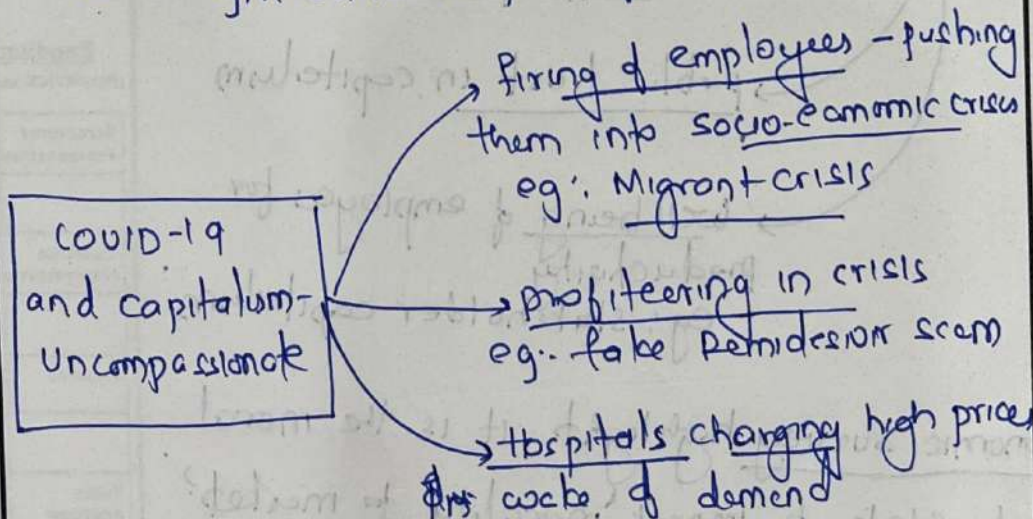 COVID-19
and capitalism-
Uncompassionate
firing of employees - pushing
them into socio-economic crisis
eg: Migrant crisis
profiteering in crisis
eg:- fake Remidesivir scam
Hospitals charging high price
wake of demand